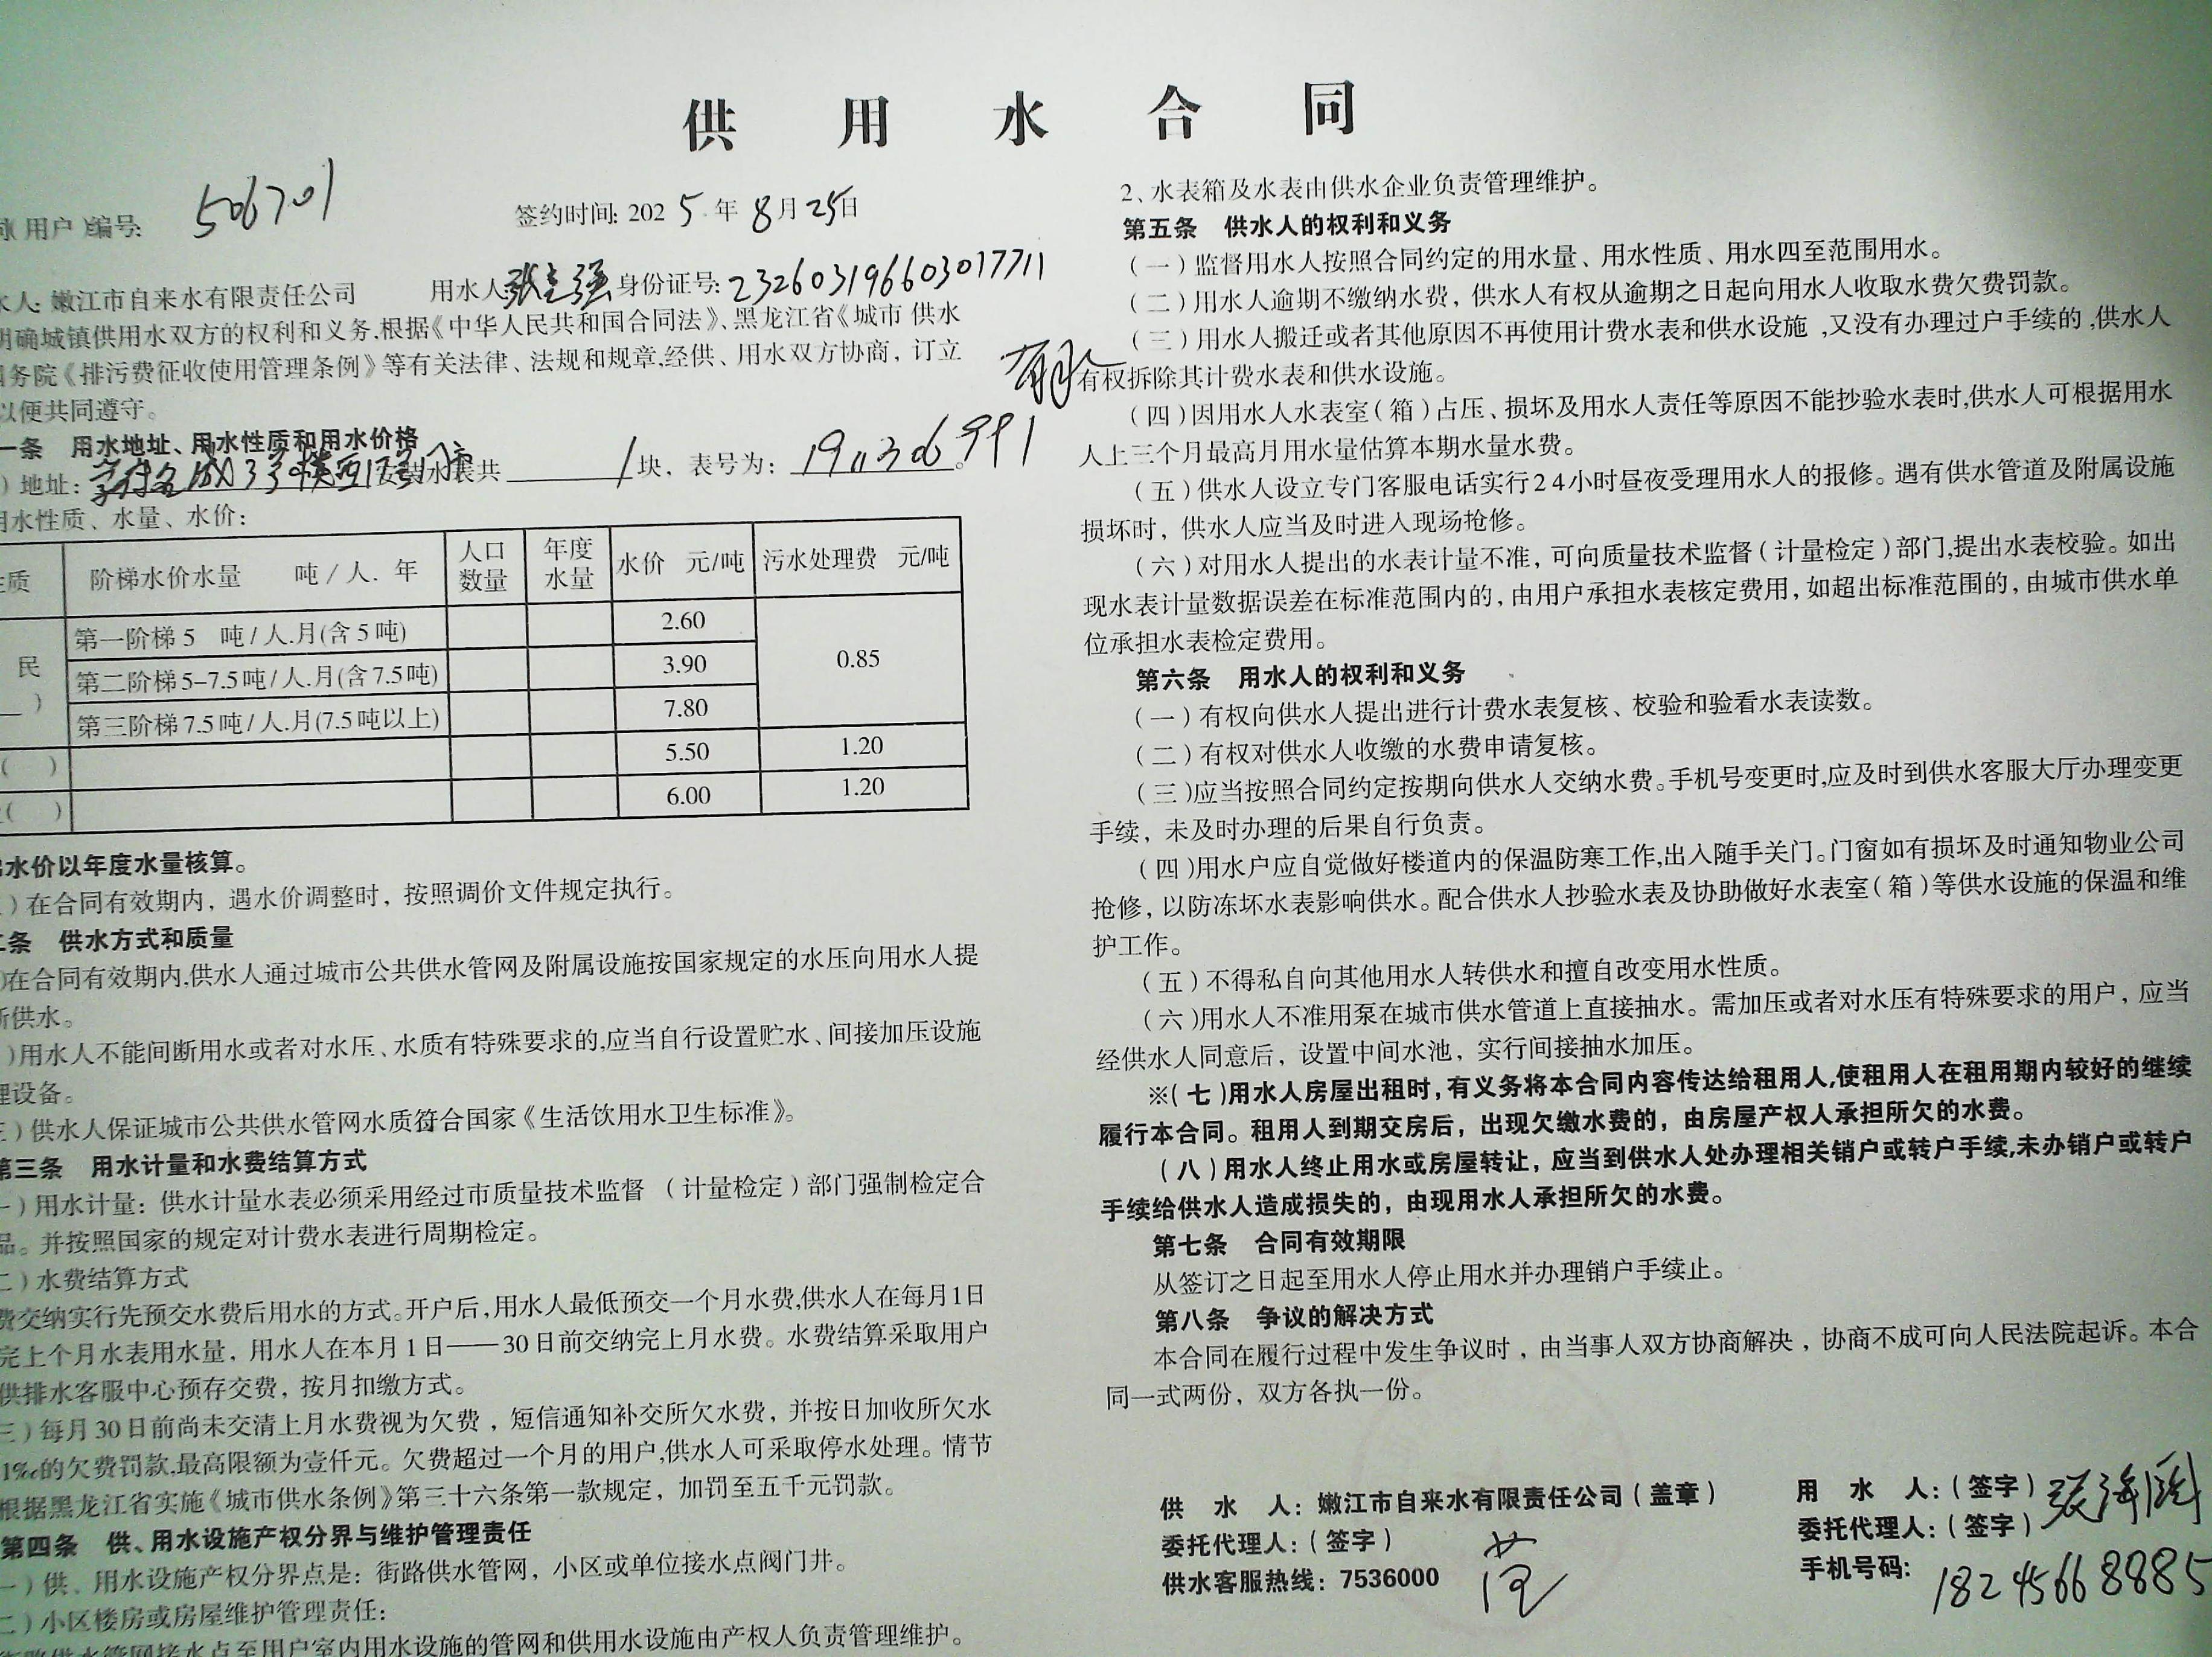 供 用 水 合 同
(用户)编号: 506701
签约时间: 2025年8月25日
水人: 嫩江市自来水有限责任公司 用水人 身份证号: 232603196603017711
明确城镇供用水双方的权利和义务.根据《中华人民共和国合同法》、黑龙江省《城市 供水
务院《排污费征收使用管理条例》等有关法律、法规和规章,经供、用水双方协商, 订立
以便共同遵守。
一条 用水地址、用水性质和用水价格
)地址: 水表共 1 块, 表号为: 1911306991。
用水性质、水量、水价:
质 阶梯水价水量 吨/人. 年 人口数量 年度水量 水价 元/吨 污水处理费 元/吨
民 第一阶梯 5 吨/人.月(含 5 吨) 2.60 0.85
第二阶梯 5-7.5 吨/人.月(含 7.5 吨) 3.90
) 第三阶梯 7.5 吨/人.月(7.5 吨以上) 7.80
( ) 5.50 1.20
( ) 6.00 1.20
水价以年度水量核算。
)在合同有效期内, 遇水价调整时, 按照调价文件规定执行。
二条 供水方式和质量
)在合同有效期内,供水人通过城市公共供水管网及附属设施按国家规定的水压向用水人提
所供水。
)用水人不能间断用水或者对水压、水质有特殊要求的,应当自行设置贮水、间接加压设施
理设备。
三)供水人保证城市公共供水管网水质符合国家《生活饮用水卫生标准》。
第三条 用水计量和水费结算方式
一)用水计量: 供水计量水表必须采用经过市质量技术监督 (计量检定)部门强制检定合
品。并按照国家的规定对计费水表进行周期检定。
二)水费结算方式
费交纳实行先预交水费后用水的方式。开户后,用水人最低预交一个月水费,供水人在每月1日
完上个月水表用水量, 用水人在本月 1 日——30 日前交纳完上月水费。水费结算采取用户
供排水客服中心预存交费, 按月扣缴方式。
三)每月 30 日前尚未交清上月水费视为欠费, 短信通知补交所欠水费, 并按日加收所欠水
1‰的欠费罚款,最高限额为壹仟元。欠费超过一个月的用户,供水人可采取停水处理。情节
根据黑龙江省实施《城市供水条例》第三十六条第一款规定, 加罚至五千元罚款。
第四条 供、用水设施产权分界与维护管理责任
一)供、用水设施产权分界点是: 街路供水管网, 小区或单位接水点阀门井。
二)小区楼房或房屋维护管理责任:
供水管网接水点至用户室内用水设施的管网和供用水设施由产权人负责管理维护。
2、水表箱及水表由供水企业负责管理维护。
第五条 供水人的权利和义务
(一)监督用水人按照合同约定的用水量、用水性质、用水四至范围用水。
(二)用水人逾期不缴纳水费, 供水人有权从逾期之日起向用水人收取水费欠费罚款。
(三)用水人搬迁或者其他原因不再使用计费水表和供水设施,又没有办理过户手续的,供水人
有权拆除其计费水表和供水设施。
(四)因用水人水表室(箱)占压、损坏及用水人责任等原因不能抄验水表时,供水人可根据用水
人上三个月最高月用水量估算本期水量水费。
(五)供水人设立专门客服电话实行24小时昼夜受理用水人的报修。遇有供水管道及附属设施
损坏时, 供水人应当及时进入现场抢修。
(六)对用水人提出的水表计量不准, 可向质量技术监督(计量检定)部门,提出水表校验。如出
现水表计量数据误差在标准范围内的, 由用户承担水表核定费用, 如超出标准范围的, 由城市供水单
位承担水表检定费用。
第六条 用水人的权利和义务
(一)有权向供水人提出进行计费水表复核、校验和验看水表读数。
(二)有权对供水人收缴的水费申请复核。
(三)应当按照合同约定按期向供水人交纳水费。手机号变更时,应及时到供水客服大厅办理变更
手续, 未及时办理的后果自行负责。
(四)用水户应自觉做好楼道内的保温防寒工作,出入随手关门。门窗如有损坏及时通知物业公司
抢修, 以防冻坏水表影响供水。配合供水人抄验水表及协助做好水表室(箱)等供水设施的保温和维
护工作。
(五)不得私自向其他用水人转供水和擅自改变用水性质。
(六)用水人不准用泵在城市供水管道上直接抽水。需加压或者对水压有特殊要求的用户, 应当
经供水人同意后, 设置中间水池, 实行间接抽水加压。
※(七)用水人房屋出租时, 有义务将本合同内容传达给租用人,使租用人在租用期内较好的继续
履行本合同。租用人到期交房后, 出现欠缴水费的, 由房屋产权人承担所欠的水费。
(八)用水人终止用水或房屋转让, 应当到供水人处办理相关销户或转户手续,未办销户或转户
手续给供水人造成损失的, 由现用水人承担所欠的水费。
第七条 合同有效期限
从签订之日起至用水人停止用水并办理销户手续止。
第八条 争议的解决方式
本合同在履行过程中发生争议时, 由当事人双方协商解决, 协商不成可向人民法院起诉。本合
同一式两份, 双方各执一份。
供 水 人: 嫩江市自来水有限责任公司(盖章)
委托代理人:(签字)
供水客服热线: 7536000
用 水 人:(签字)
委托代理人:(签字)
手机号码: 18245668885